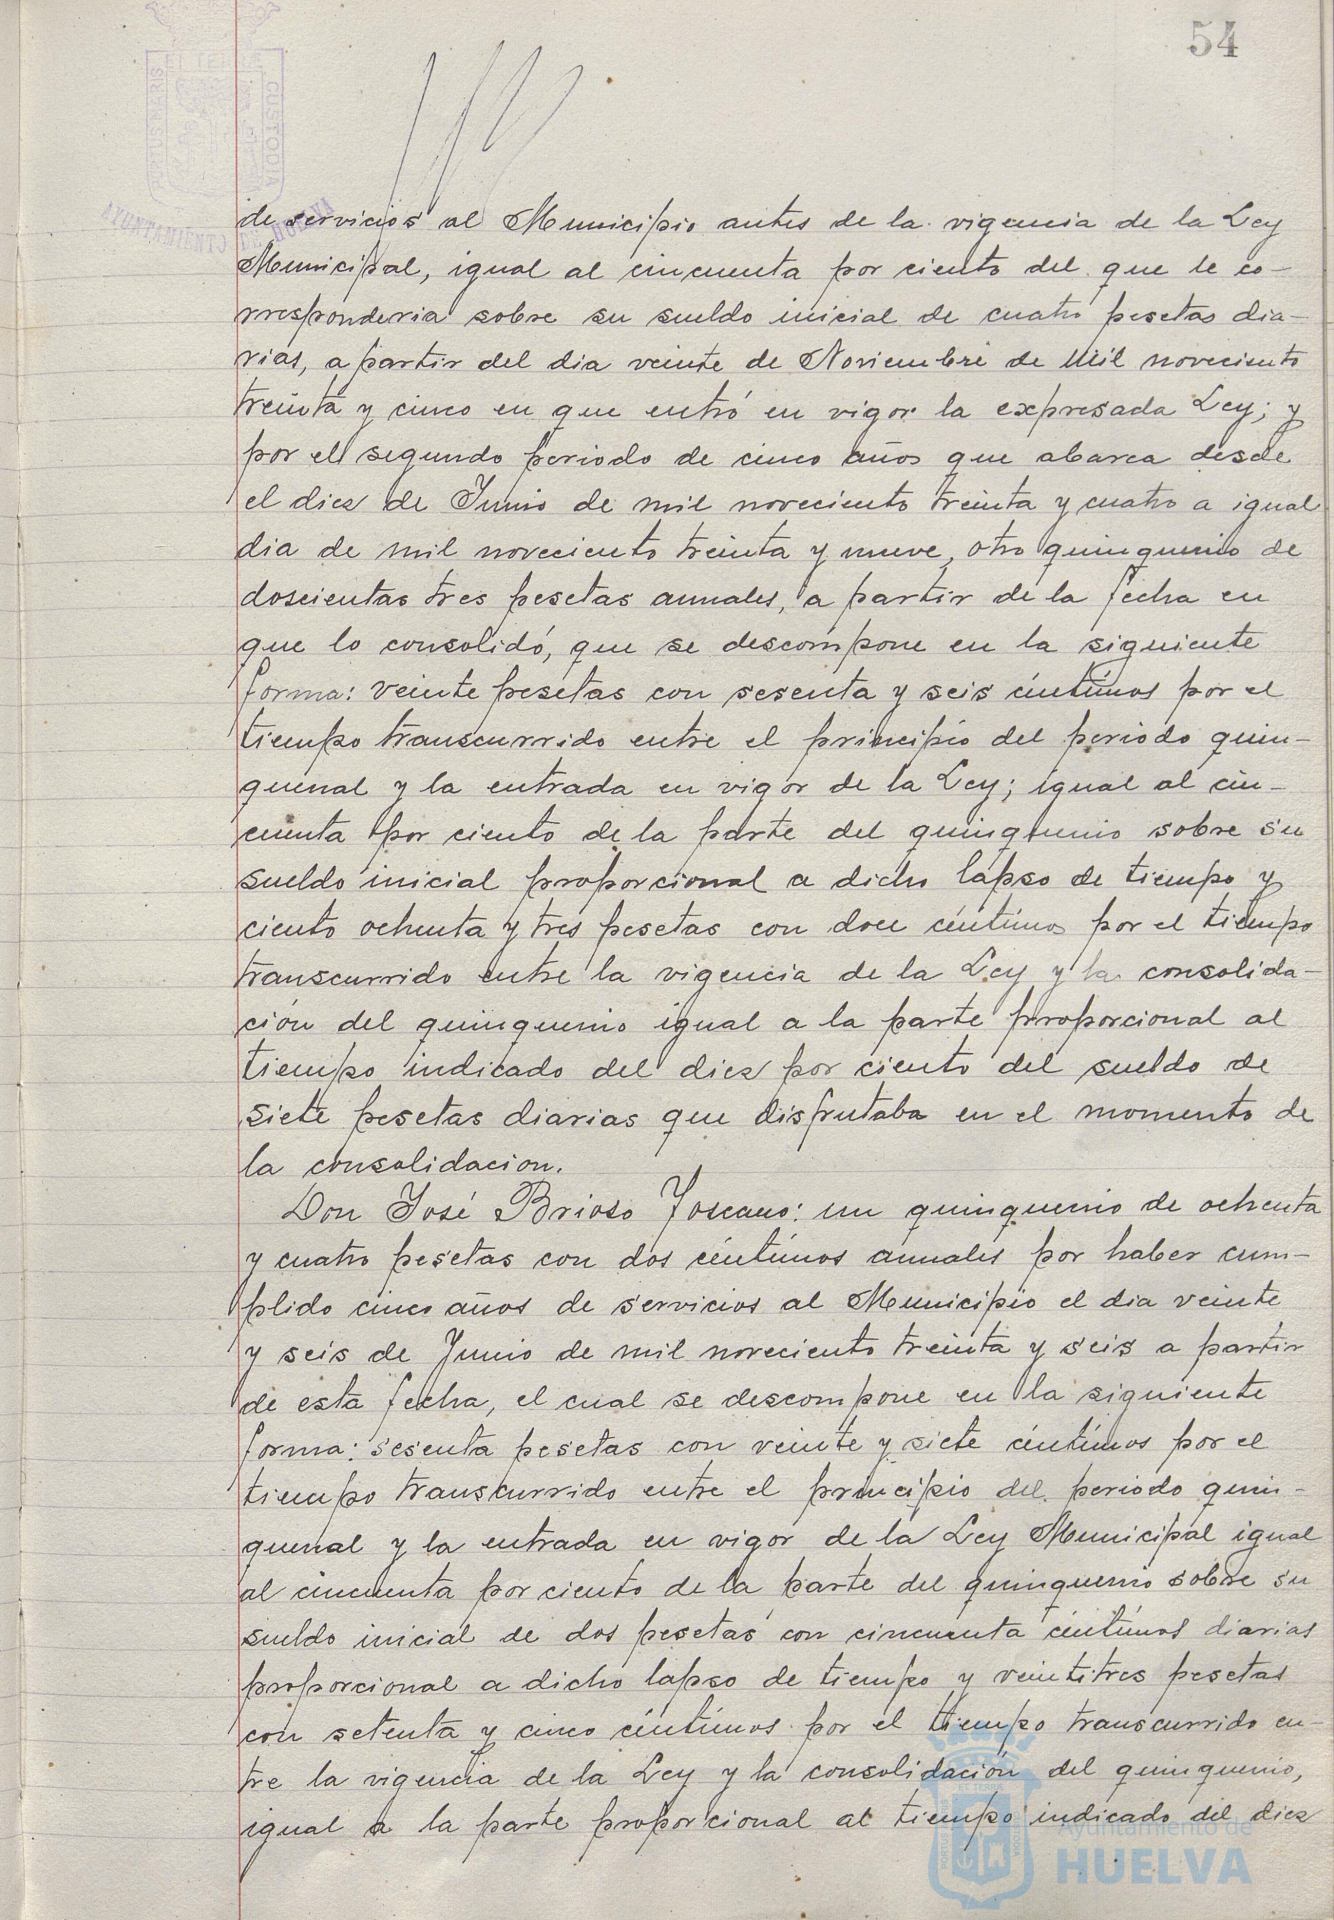 54
PORTUS MARIS ET TERRE CUSTODIA
AYUNTAMIENTO DE HUELVA
de servicios al Municipio antes de la vigencia de la Ley
Municipal, igual al cincuenta por ciento del que le co-
rresponderia sobre su sueldo inicial de cuatro pesetas dia-
rias, a partir del dia veinte de Noviembre de mil noveciento
treinta y cinco en que entró en vigor la expresada Ley; y
por el segundo periodo de cinco años que abarca desde
el diez de Junio de mil noveciento treinta y cuatro a igual
dia de mil noveciento treinta y nueve, otro quinquenio de
doscientas tres pesetas annales, a partir de la fecha en
que lo consolidó, que se descompone en la siguiente
forma: veinte pesetas con sesenta y seis céntimos por el
tiempo transcurrido entre el principio del periodo quin-
quenal y la entrada en vigor de la Ley; igual al cin-
cuenta por ciento de la parte del quinquenio sobre su
sueldo inicial proporcional a dicho lapso de tiempo y
ciento ochenta y tres pesetas con doce céntimos por el tiempo
transcurrido entre la vigencia de la Ley y la consolida-
ción del quinquenio igual a la parte proporcional al
tiempo indicado del diez por ciento del sueldo de
siete pesetas diarias que disfrutaba en el momento de
la consolidacion.
Don José Brioso Toscano: un quinquenio de ochenta
y cuatro pesetas con dos céntimos annales por haber cum-
plido cinco años de servicios al Municipio el dia veinte
y seis de Junio de mil noveciento treinta y seis a partir
de esta fecha, el cual se descompone en la siguiente
forma: sesenta pesetas con veinte y siete céntimos por el
tiempo transcurrido entre el principio del periodo quin-
quenal y la entrada en vigor de la Ley Municipal igual
al cincuenta por ciento de la parte del quinquenio sobre su
sueldo inicial de dos pesetas con cincuenta céntimos diarias
proporcional a dicho lapso de tiempo y veintitres pesetas
con setenta y cinco céntimos por el tiempo transcurrido en-
tre la vigencia de la Ley y la consolidación del quinquenio,
igual a la parte proporcional al tiempo indicado del diez
Ayuntamiento de
HUELVA